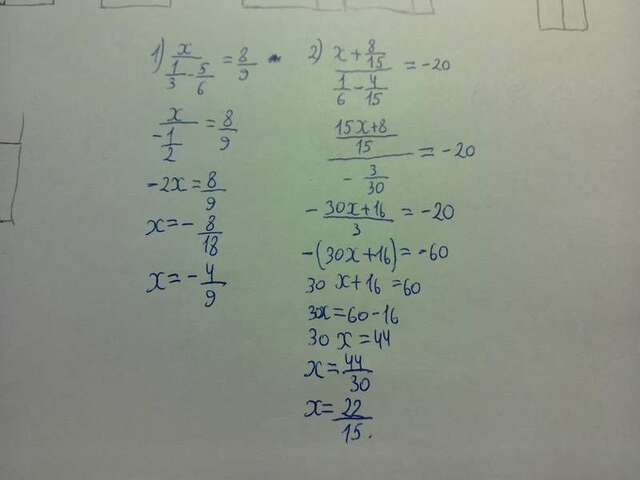 1) x / (1/3 - 5/6) = 8/9
x / (-1/2) = 8/9
-2x = 8/9
x = - 8/18
x = - 4/9
2) (x + 8/15) / (1/6 - 4/15) = -20
((15x+8)/15) / (- 3/30) = -20
- (30x+16)/3 = -20
-(30x+16) = -60
30 x + 16 = 60
30x = 60 - 16
30 x = 44
x = 44/30
x = 22/15.